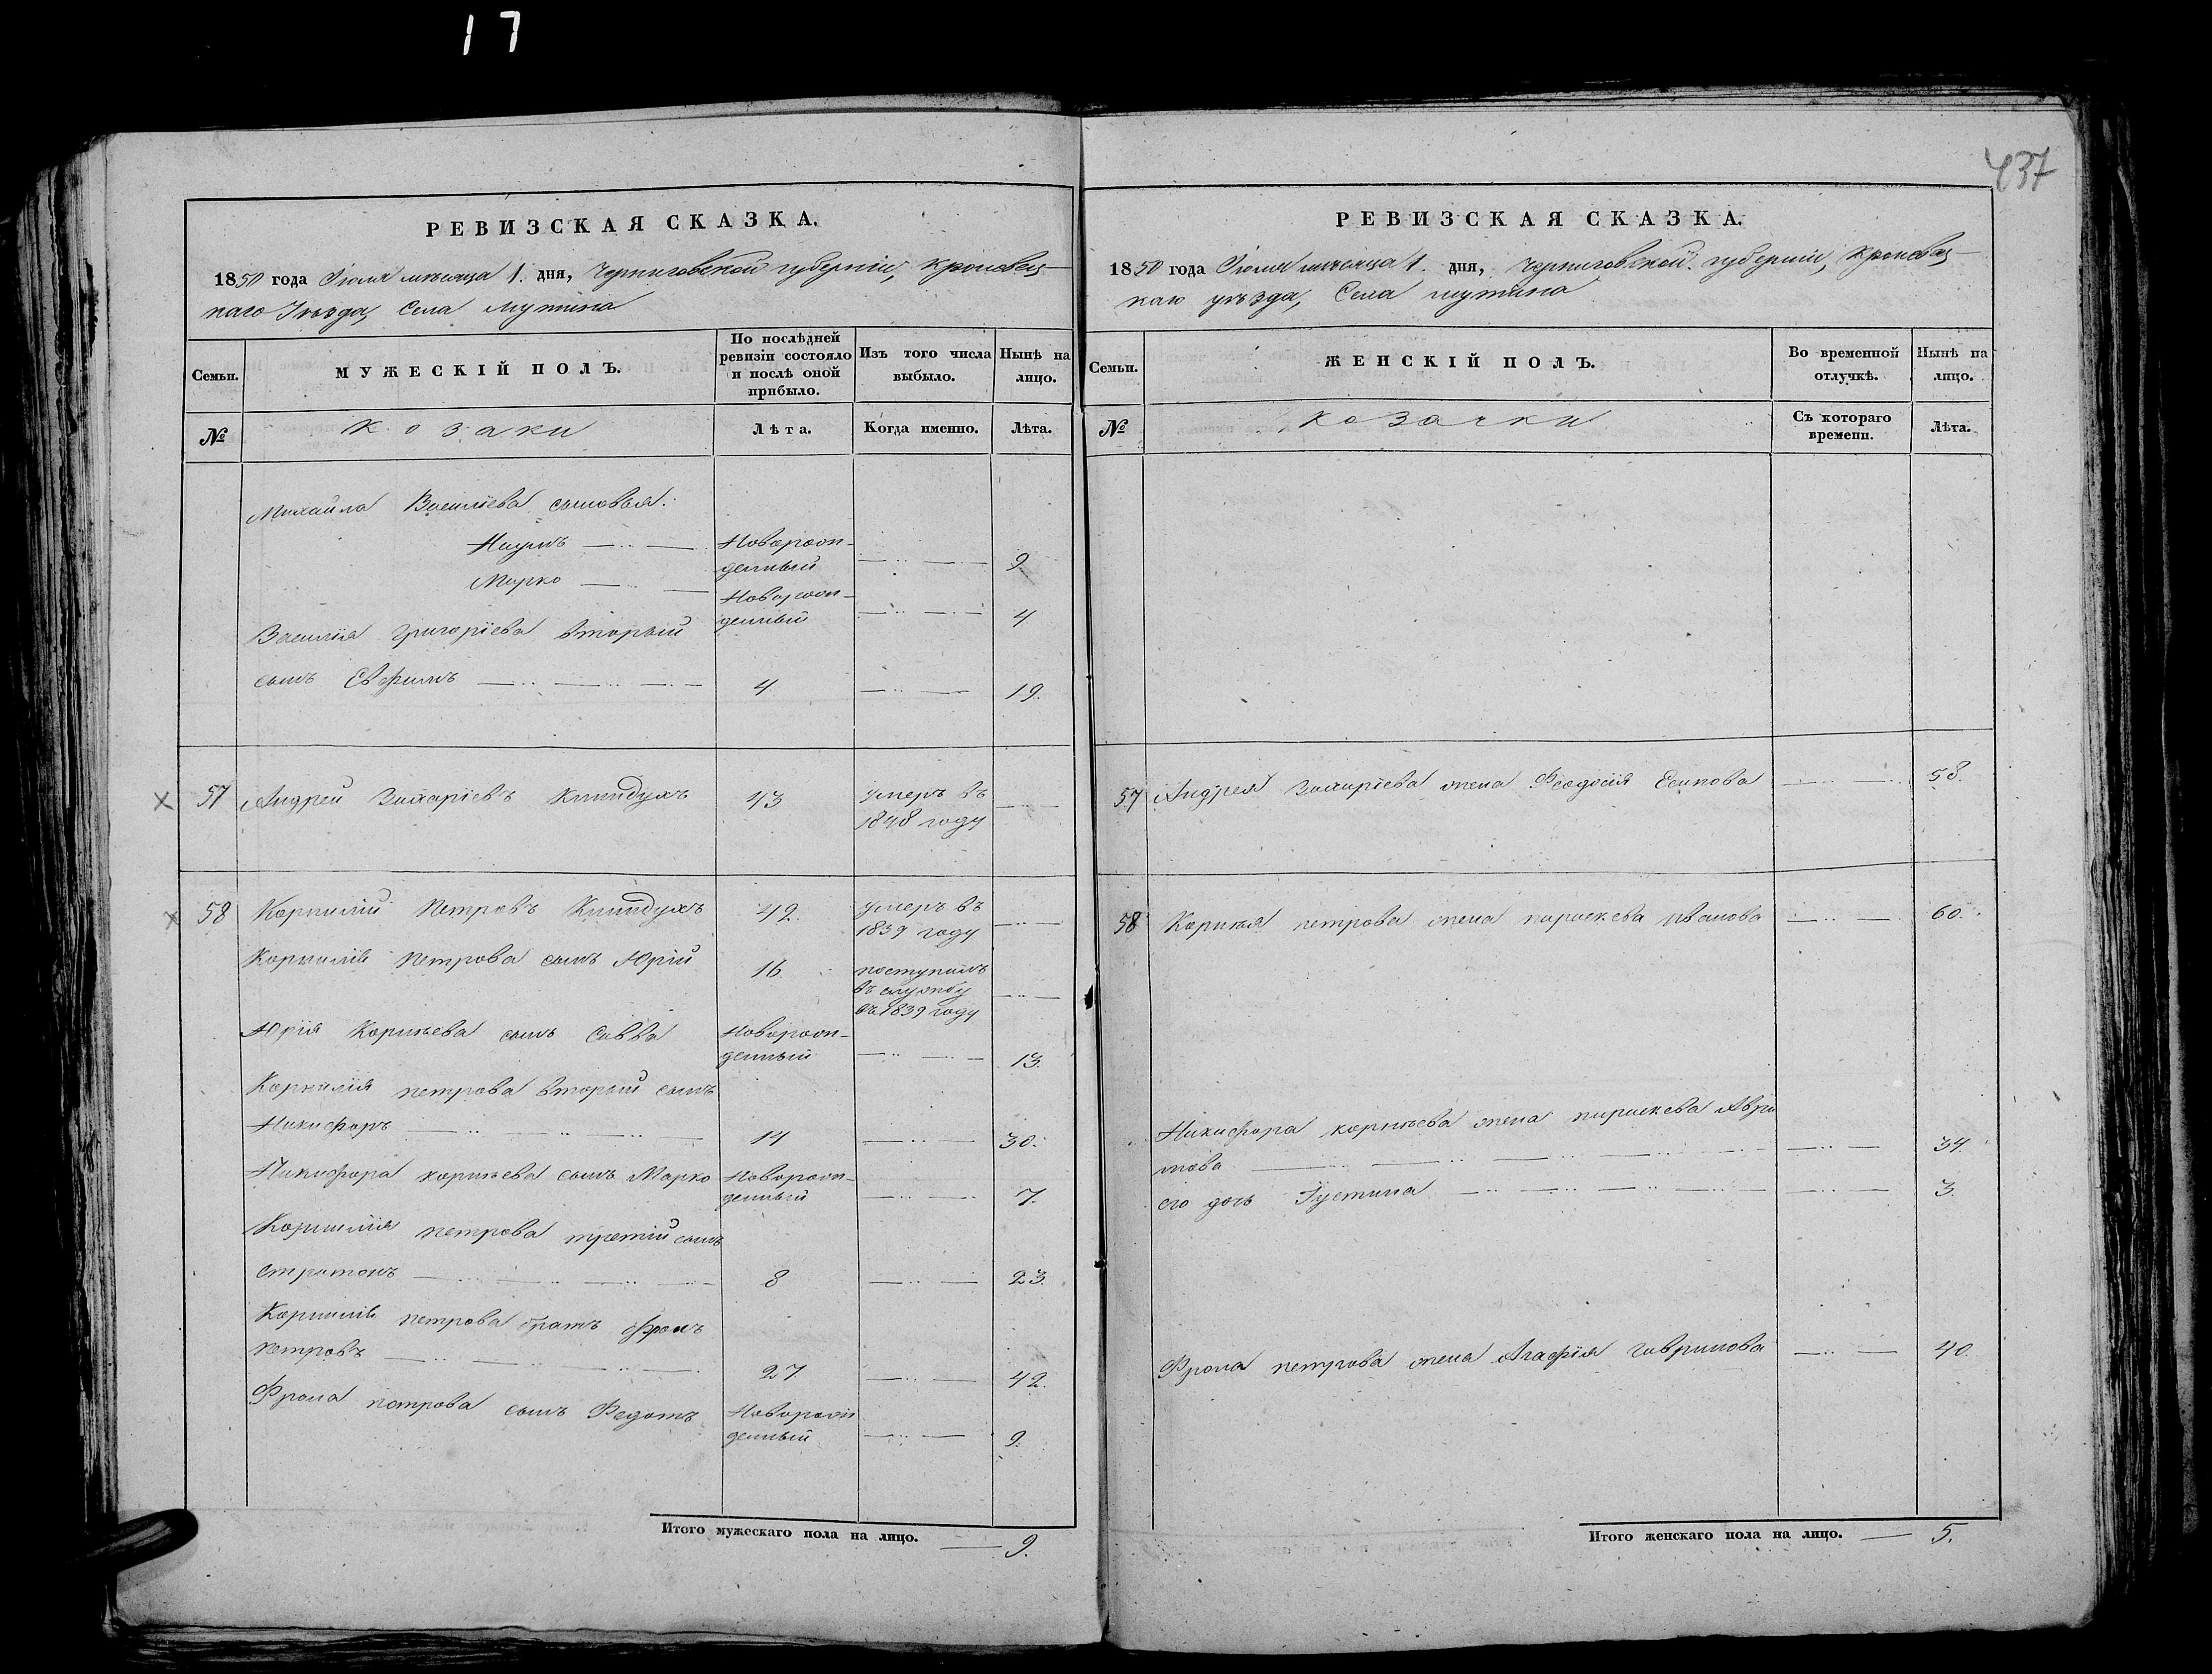 17
437
РЕВИЗСКАЯ СКАЗКА.
1850 года Іюля мѣсяца 1. дня, Черниговской губерніи, Кролевец-
каго Уѣзда, Села Мутина
Семьи.
МУЖЕСКІЙ ПОЛЪ.
По послѣдней ревизіи состояло и послѣ оной прибыло.
Изъ того числа выбыло.
Нынѣ на лицо.
№
Козаки
Лѣта.
Когда именно.
Лѣта.
Михайла Василіева сыновья:
Наумъ Новорож-
денный 9.
Марко Новорож-
денный 4
Василія Григоріева вторый
сынъ Евфимъ 4 19.
57 Андрей Захаріевъ 43 умеръ въ
1848 году
58 Корнилій Петровъ 42. умеръ въ
1839 году
Корнилія Петрова сынъ Юрій 16. поступилъ
въ службу
въ 1839 году
Юрія Корнѣева сынъ Савва Новорож-
денный 13.
Корнилія петрова вторый сынъ
Никифоръ 14 30.
Никифора корнѣева сынъ Марко Новорож-
денный 7.
Корнилія петрова третій сынъ
Стратонъ 8 23.
Корнилія петрова братъ Фролъ
петровъ 27 42.
Фрола петрова сынъ Федотъ Новорож-
денный 9.
Итого мужескаго пола на лицо. 9.
РЕВИЗСКАЯ СКАЗКА.
1850 года Іюля мѣсяца 1. дня, Черниговской губерніи, Кролевец-
каго уѣзда, Села Мутина
Семьи.
ЖЕНСКІЙ ПОЛЪ.
Во временной отлучкѣ.
Нынѣ на лицо.
№
Козачки
Съ котораго времени.
Лѣта.
57 Андрея Захаріева жена Феодосія Есипова 58.
58 Корнѣя петрова жена параскева Иванова 60.
Никифора корнѣева жена параскева Авра
мова 34.
его дочь Іустина 3.
Фрола петрова жена Агафія Гаврилова 40.
Итого женскаго пола на лицо. 5.